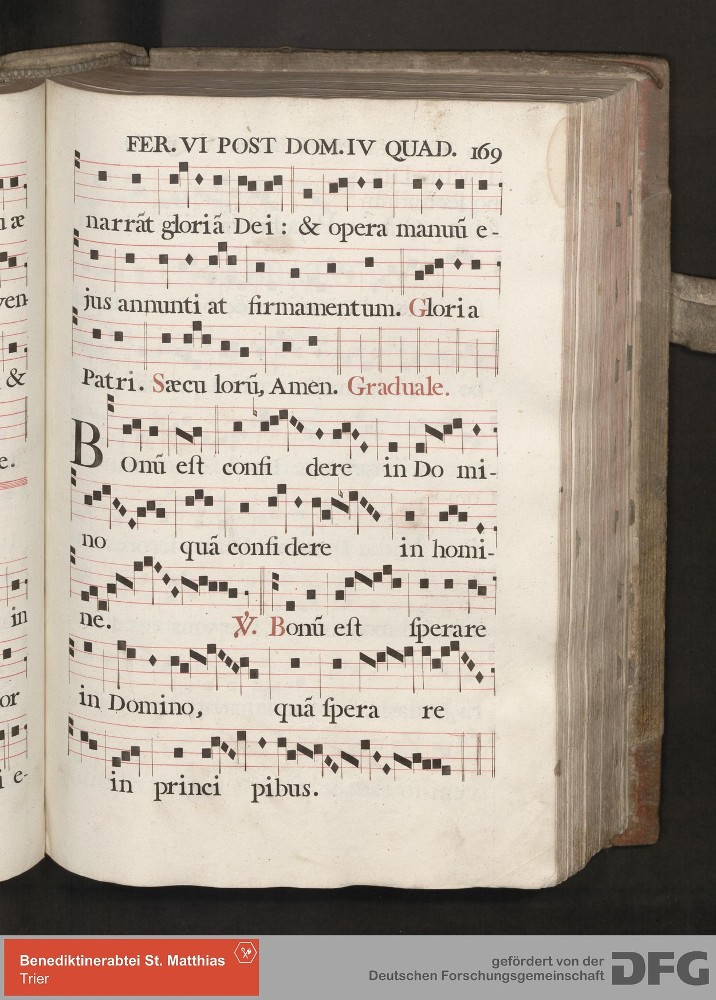 FER. VI POST DOM. IV QUAD. 169
narrãt gloriã Dei : & opera manuũ e-
jus annunti at firmamentum. Gloria
Patri. Sæcu lorũ, Amen. Graduale.
BOnũ eſt confi dere in Do mi-
no quã confidere in homi-
ne. ℣. Bonũ eſt ſperare
in Domino, quã ſpera re
in princi pibus.
æ
ven-
&
e.
in
or
i e-
Benediktinerabtei St. Matthias
Trier
gefördert von der
Deutschen Forschungsgemeinschaft
DFG